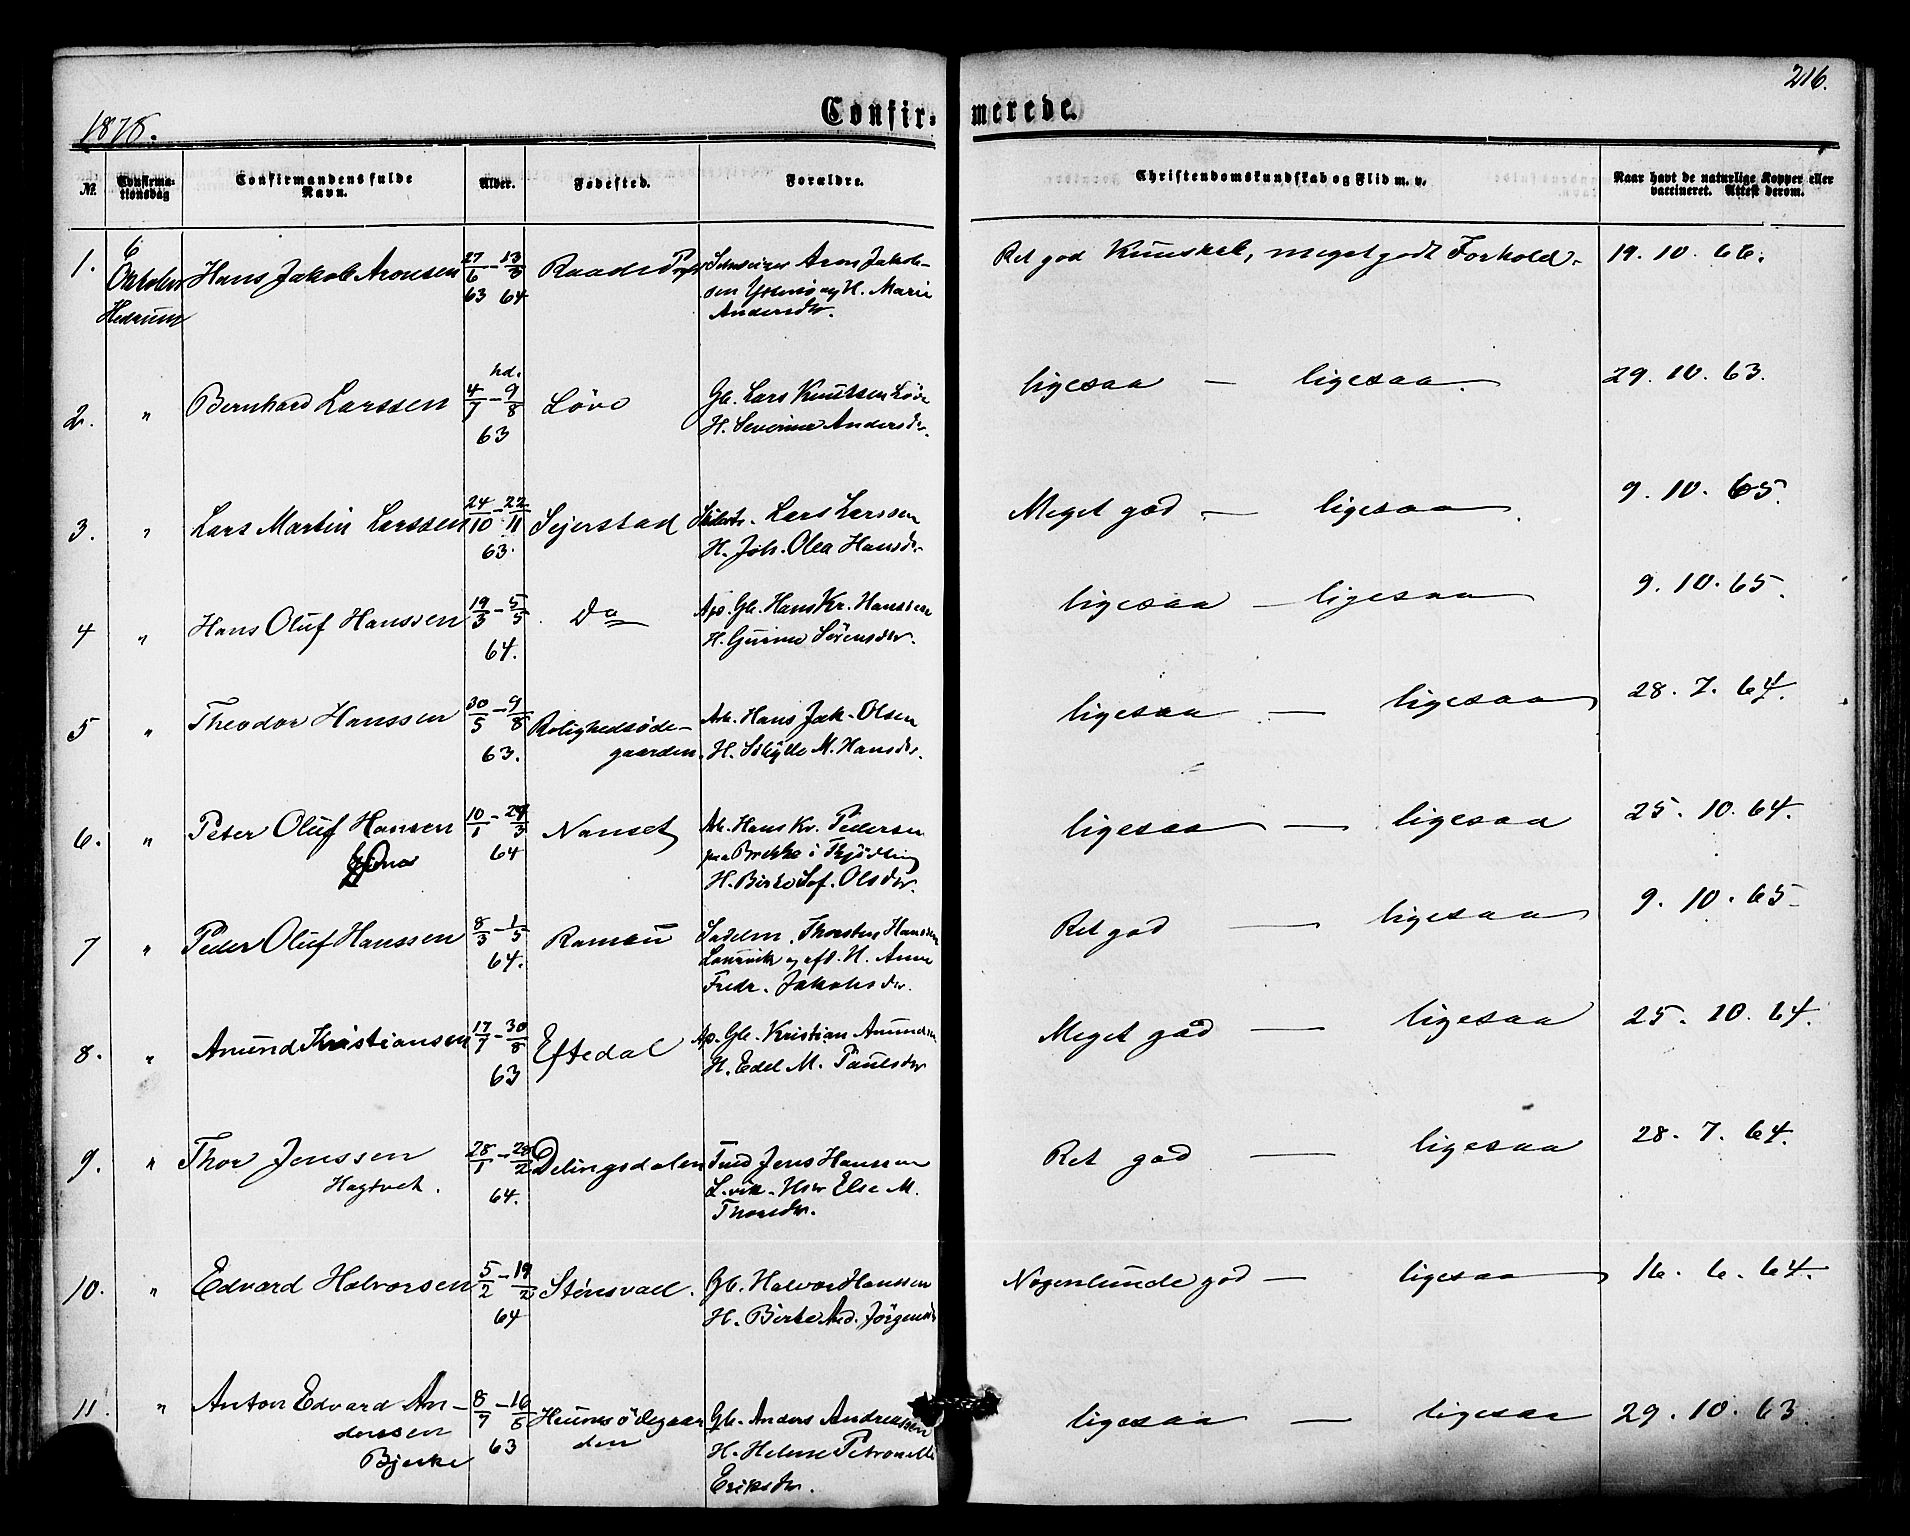 216.
1878.
Confir- merede.
№. Confirma-tionsdag Confirmandens fulde Navn. Alder. Fødested. Forældre. Christendomskundskab og Flid m. v. Naar havt de naturlige Kopper eller vaccineret. Attest derom.
1. 6 Oktober Hedrum Hans Jakob Aronsen 27/6 63 Aron Jakob-
sen H. Marie
Andersdr.
Ret god Kundskab, meget godt Forhold. 19. 10. 66.
2. " Bernhard Larssen hd. 4/7 - 9/8 63 Løve Gb. Lars Knutsen Løve
H. Severine Andersdr.
ligesaa — ligesaa 29. 10. 63.
3. " Lars Martin Larssen 24/10 - 22/11 63. Sejerstad Lars Larssen
H. Joh. Olea Hansdr.
Meget god — ligesaa 9. 10. 65.
4 " Hans Oluf Hanssen 19/3 - 5/5 64. Do Gb. Hans Kr. Hanssen
H. Gurine Sørensdr.
ligesaa — ligesaa 9. 10. 65.
5 " Theodor Hanssen 30/5 - 9/8 63. Rolighedsøde-
gaarden. Arb. Hans Jak. Olsen
H. Sibylle M. Hansdr.
ligesaa — ligesaa 28. 7. 64.
6. " Peter Oluf Hansen 10/1 64 Nanset Arb. Hans Kr. Pedersen
paa Brekke i Thjødling
H. Birte Sof. Olsdr.
ligesaa — ligesaa 25. 10. 64.
7 " Peder Oluf Hanssen 8/3 - 1/5 64. Ramau Sadelm. Thorsten Hanssen
Laurvik og afd. H. Anne
Fredr. Jakobsdr.
Ret god — ligesaa 9. 10. 65
8. " Anund Kristiansen 17/7 - 30/8 63 Eftedal Gb. Kristian Anundsen
H. Edel M. Paulsdr
Meget god — ligesaa 25. 10. 64.
9. " Thor Jenssen
Hagtvet. 28/1 64. Delingsdalen Jens Hanssen
L.vik. Else M.
Thorsdr.
Ret god — ligesaa 28. 7. 64.
10. " Edvard Halvorsen 5/2 - 19/2 64 Stensvad. Gb. Halvor Hanssen
H. Birte And. Jørgensdr
Nogenlunde god — ligesaa 16. 6. 64.
11. " Anton Edvard An-
derssen
Bjerke 8/7 - 16/8 63 Heumsødegaar
den Gb. Anders Andreassen
H. Helene Petronelle
Eriksdr.
ligesaa — ligesaa 29. 10. 63.